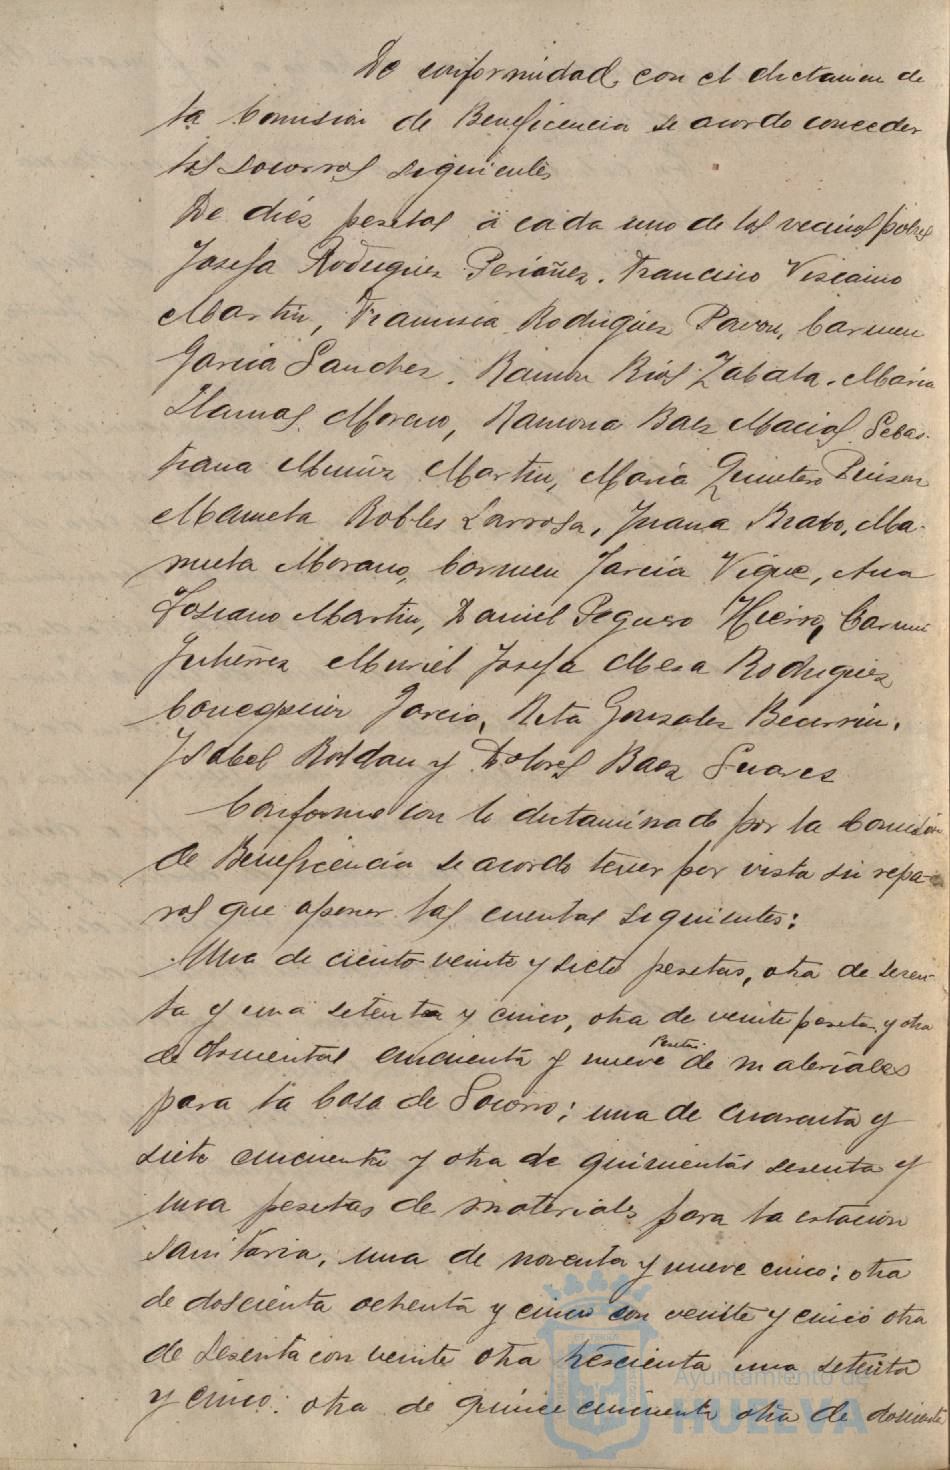 De conformidad con el dictamen de
la Comision de Beneficencia se acordo conceder
los socorros siguientes
De diés pesetas á cada uno de los vecinos pobres
Josefa Rodriguez Periañez. Francisco Viscaino
Martin, Francisca Rodriguez Pavon, Carmen
Garcia Sanchez. Ramon Rios Zabala. Maria
Llamas Moreno, Ramona Baez Macias Sebas-
tiana Muñiz Martin, Maria Quintero Pinzon
Manuela Robles Larrosa, Juana Brabo, Ma-
nuela Morano, Carmen Garcia Vique, Ana
Toscano Martin, Daniel Peguero Hierro, Carmen
Gutierrez Muriel Josefa Mesa Rodriguez
Concepcion Garcia, Rita Gonzalez Becerrin.
Ysabel Roldan y Dolores Baez Suares
Conforme con lo dictaminado por la Comision
de Beneficencia se acordo tener por vista sin repa-
ros que oponer las cuentas siguientes:
Una de ciento veinte y siete pesetas, otra de sesen-
ta y una setenta y cinco, otra de veinte pesetas y otra
de doscientas cincuenta y nueve pesetas de materiales
para la Casa de Socorro; una de cuarenta y
siete cincuenta y otra de quinientas sesenta y
una pesetas de materiales para la estacion
sanitaria, una de noventa y nueve cinco; otra
de doscienta ochenta y cinco con veinte y cinco otra
de sesenta con veinte otra trescienta una setenta
y cinco: otra de quince cincuenta otra de doscienta
Ayuntamiento de
HUELVA